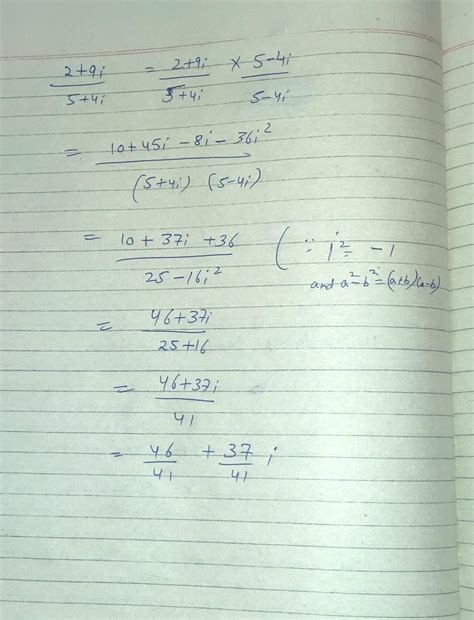 2+9i/5+4i = 2+9i/5+4i × 5-4i/5-4i
= 10+45i-8i-36i²/(5+4i) (5-4i)
= 10+37i+36/25-16i² (∵ i² = -1
and a²-b²=(a+b)(a-b)
= 46+37i/25+16
= 46+37i/41
= 46/41 + 37/41 i